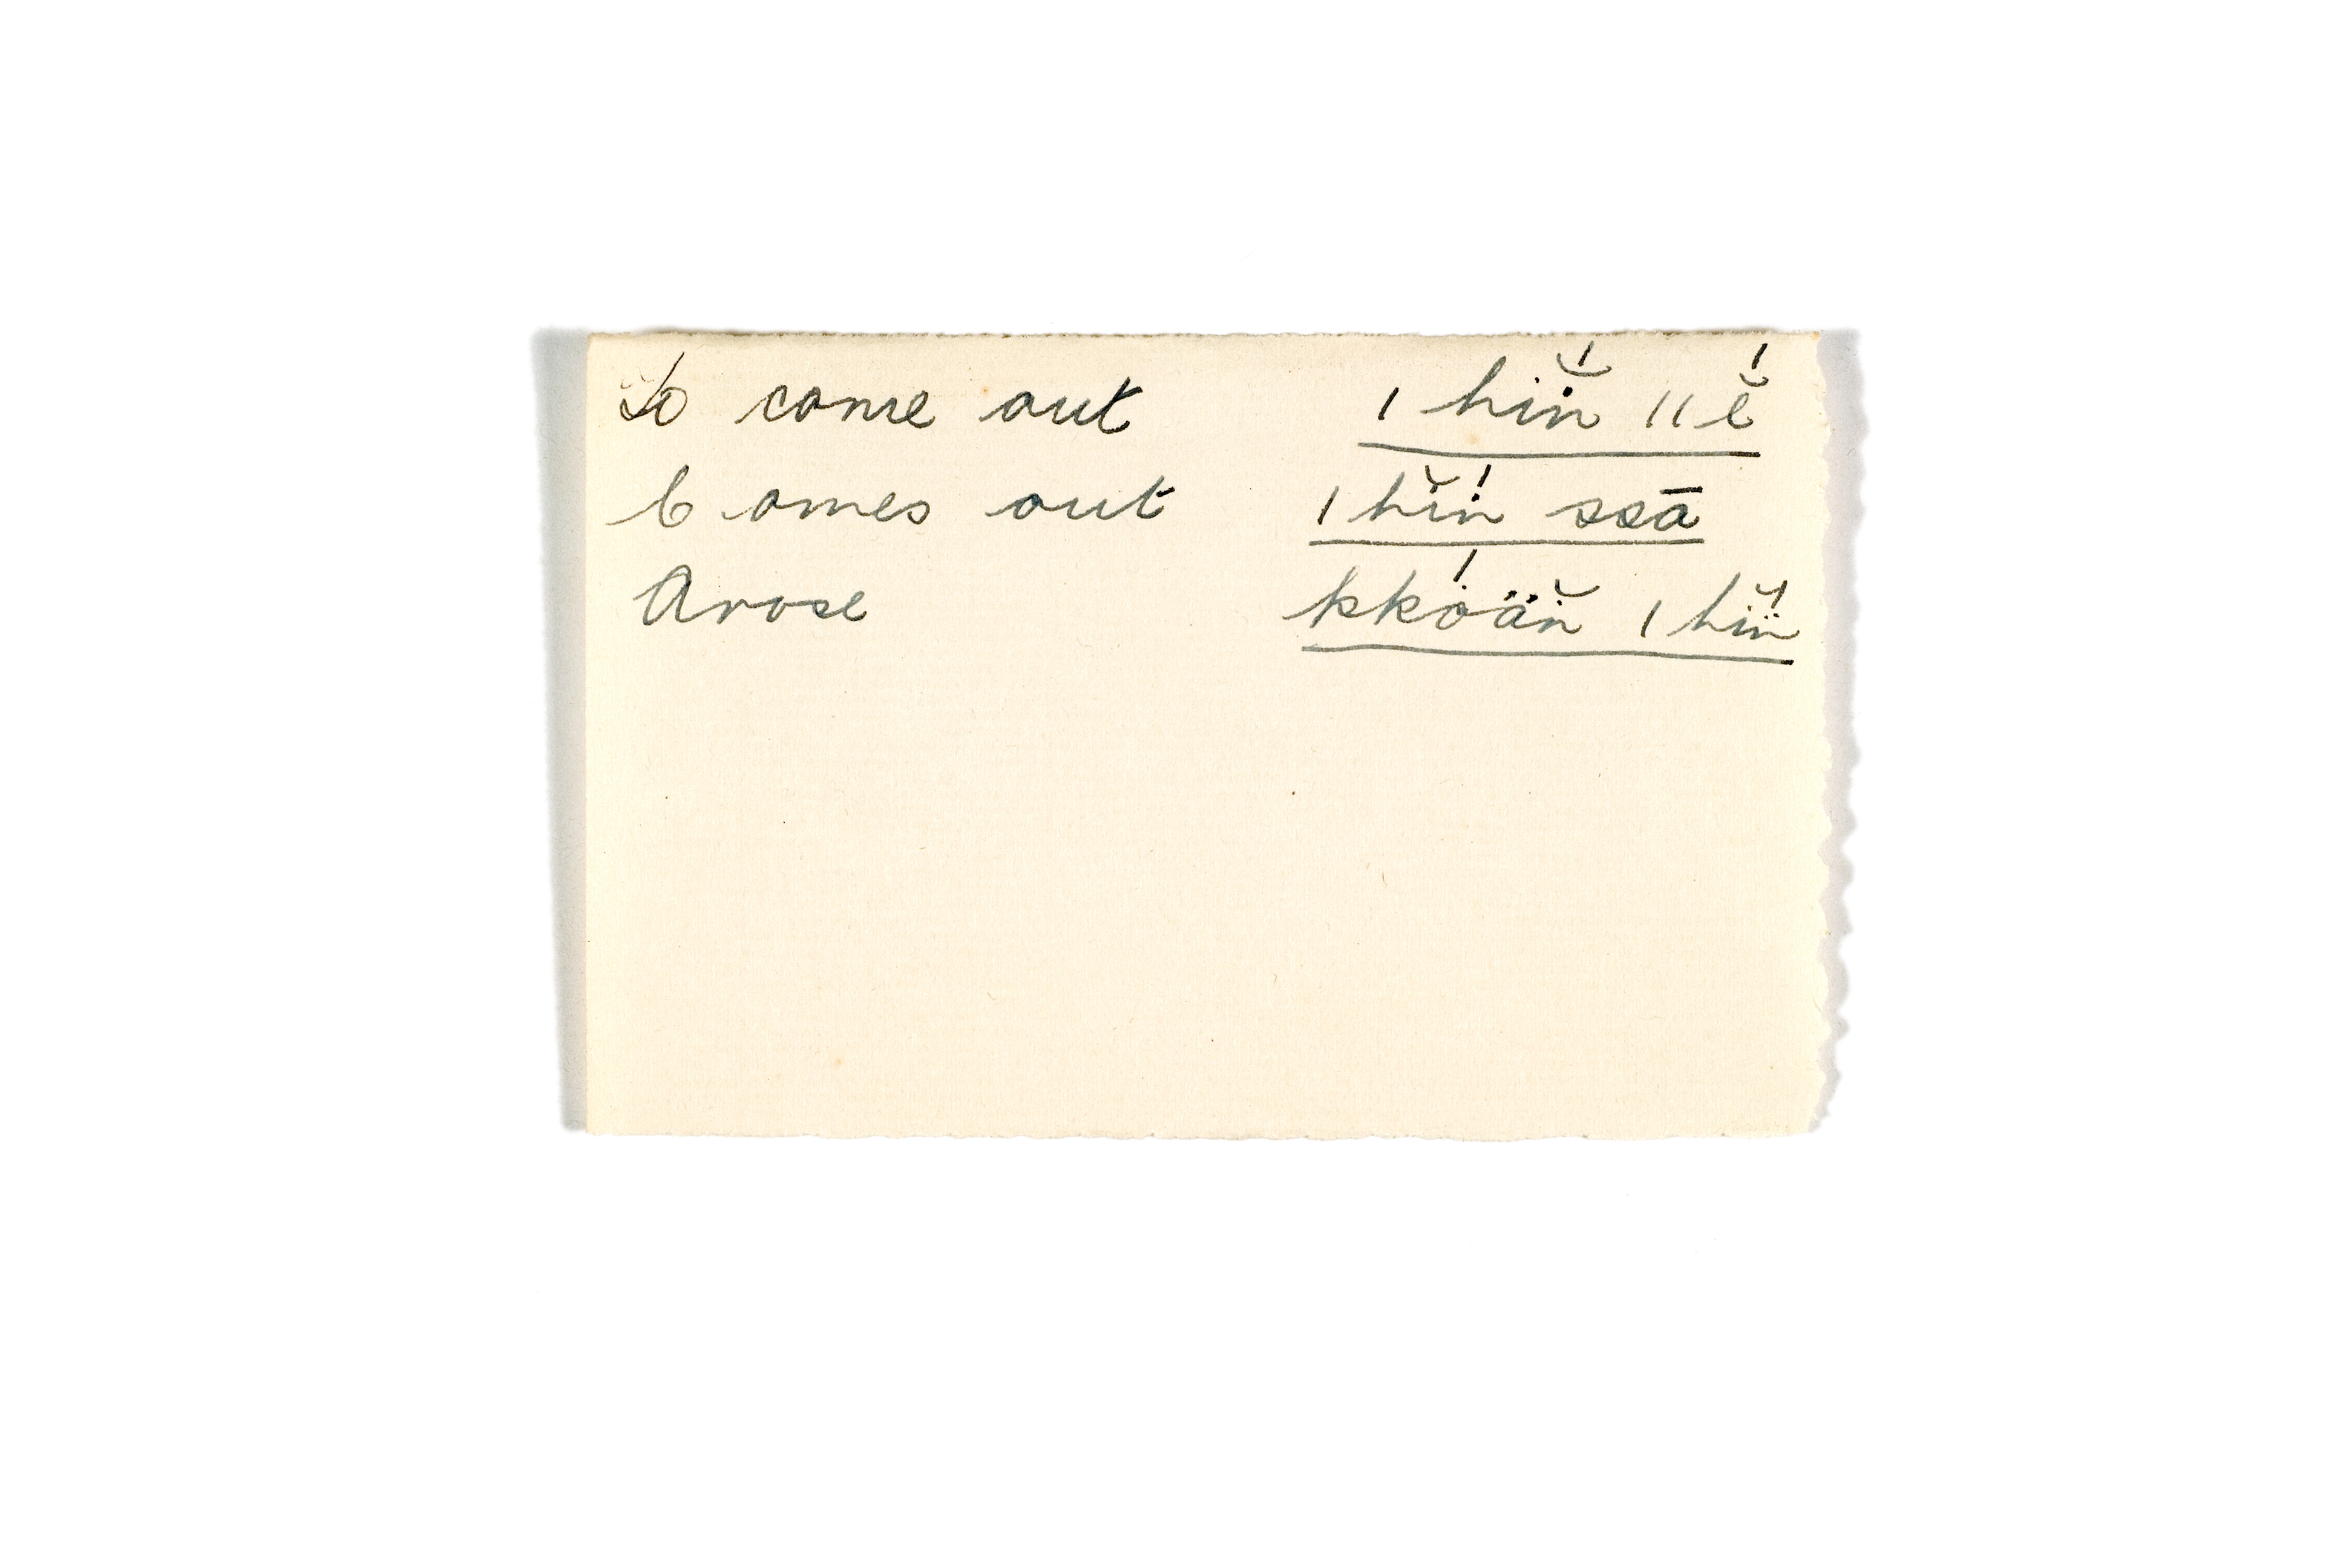 To come out ı hin̈̆́ ıı ĕ́
Comes out ı hĭń ssā
Arose kkȯ́än̈̆ ı hĭn̈́